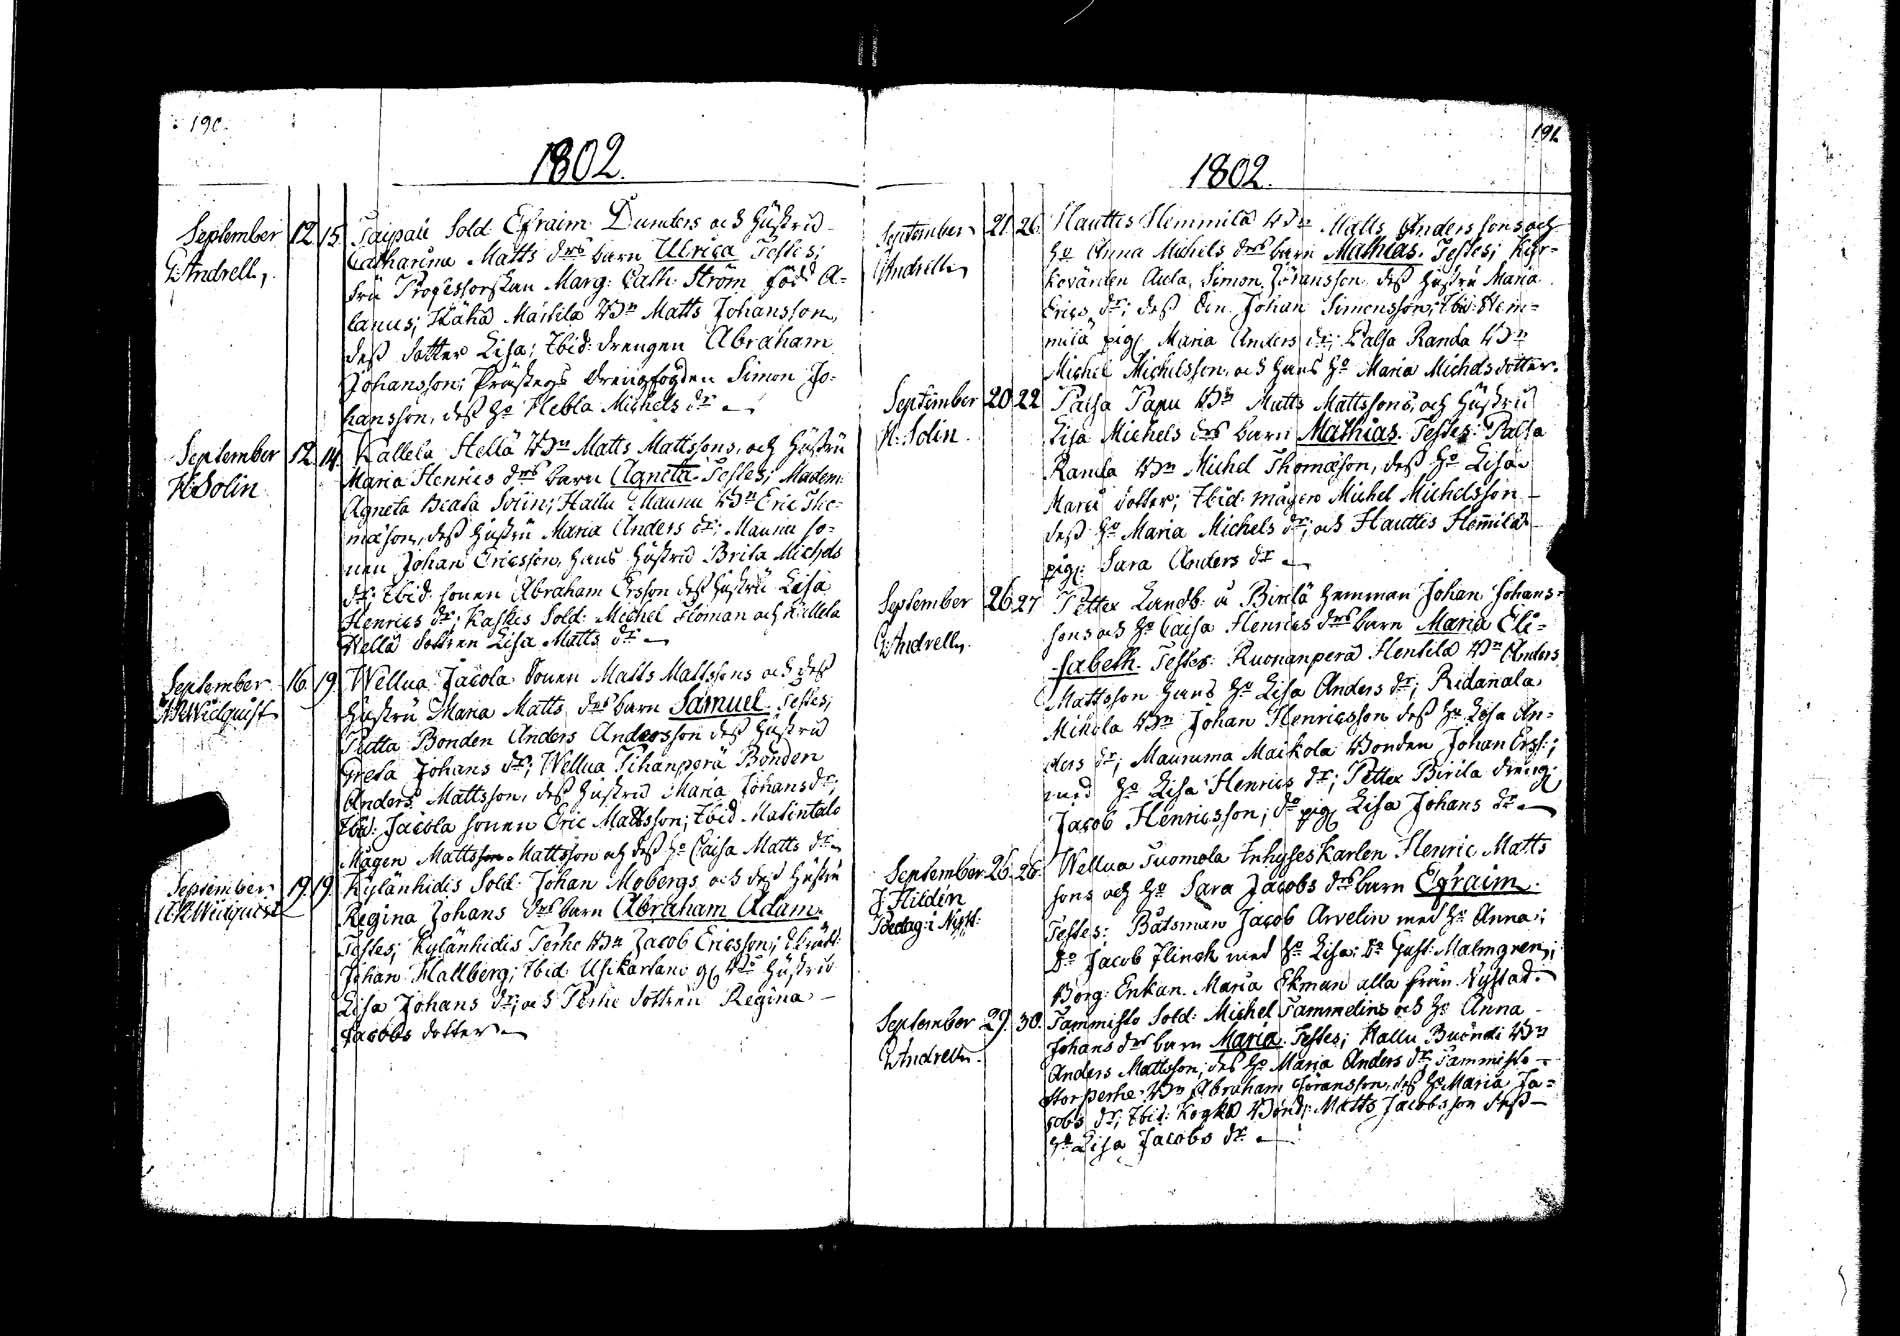 190.
1802.
September 12 15. Taipale Sold: Efraim Dunders och Hustrus
G: Andrell, Catharina Matts drs barn Ulrica Testes;
Fru Professorskan Marg: Cath: Ström föd A-
lanus; Matts Johansson,
dess dotter Lisa; Ibid: drengen Abraham
Johansson; Prästegs Drengfogden Simon Jo-
hansson, dess Ho Hebla Michels dr
September 12. 14. Kallela Hellä Bdn Matts Mattssons, och Hustru
H: Solin Maria Henrics drs barn Agneta. Testes; Madem:
Agneta Beata Solin; Hallu Maunu Bdn Eric Tho-
masson, dess Hustru Maria Anders dr; Maunu so-
nen Johan Ericsson, hans Hustru Brita Michels
dr; Ibid: sonen Abraham Ersson dess Hustru Lisa
Henrics dr; Kaskis Sold: Michel Floman och Kallela
Hellä dottren Lisa Matts dr
September 16. 19. Wellua Jacola Sonen Matts Mattssons och dess
Widquist Hustru Maria Matts drs barn Samuel. Testes;
Bonden Anders Andersson dess Hustru
Greta Johans dr; Wellua Tihanperä Bonden
Anders Mattsson, dess Hustru Maria Johans dr;
Ibid: Jacola sonen Eric Mattsson; Ibid Matintalo
Mågen Mattsson Mattsson och dess Ho Caisa Matts dr
September 19. 19. Kylänhidis Sold: Johan Mobergs och dess Hustru
Widquist Regina Johans drs barn Abraham Adam.
Testes; Kylänhidis Terhe Bdn Jacob Ericsson;
Johan Hallberg; Ibid: Hustru
Lisa Johans dr; och Terhe dottren Regina
Jacobs dotter
191.
1802.
September 21. 26. Hauttis Hemmilä Bdn Matts Anderssons och
G: Andrell, Ho Anna Michels drs barn Mathias. Testes; Kyr-
kovärden Simon Jöransson dess Hustru Maria
Erics dr; dess Son Johan Simonsson; Ibid: Hem-
milä pig: Maria Anders dr; Palsa Randa Bdn
Michel Michelsson, och hans Ho Maria Michels dotter.
September 20 22 Palsa Papu Bdn Matts Mattssons, och Hustru
H: Solin. Lisa Michels drs barn Mathias. Testes: Palsa
Randa Bdn Michel Thomasson, dess Ho Lisa
dotter; Ibid: mågen Michel Michelsson
dess Ho Maria Michels dr; och Hauttis Hemmilä
pig: Sara Anders dr
September 26. 27 Pettex Landb: å Birilä Hemman Johan Johans-
G: Andrell, sons och Ho Caisa Henrics drs barn Maria Eli-
sabeth. Testes: Ruonanperä Hentilä Bdn Anders
Mattsson hans Ho Lisa Anders dr; Ridanala
Mikola Bdn Johan Henricsson dess Ho Lisa An-
ders dr; Mauruma Maikola Bonden Johan Erss:;
med Ho Lisa Henrics dr; Pettex Birila dreng:
Jacob Henricsson; do pig: Lisa Johans dr
September 26. 26. Wellua Tuomola Inhyseskarlen Henric Matts
J: Hildén sons och Ho Sara Jacobs drs barn Efraim.
Testes: Båtsman Jacob Arvelin med Ho Anna;
do Jacob Flinck med Ho Lisa; do Gust: Malmgren;
Borg: Enkan. Maria Ekman alla från Nystad.
September 29. 30. Tammisto Sold: Michel Tammelins och Ho Anna
G: Andrell. Johans drs barn Maria. Testes; Hallu Buöndi Bdn
Anders Mattsson, dess Ho Maria Anders dr; Tammisto
Storperhe Bdn Abraham Jöransson, dess Ho Maria Ja-
cobs dr; Ibid: Bond: Matts Jacobsson dess
Ho Lisa Jacobs dr